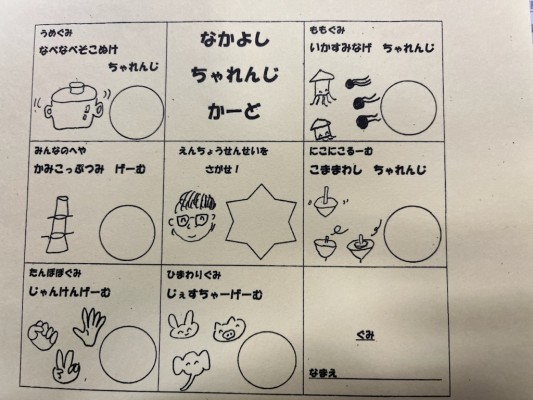 うめぐみ
なべなべそこぬけ
ちゃれんじ
なかよし
ちゃれんじ
かーど
ももぐみ
いかすみなげ ちゃれんじ
みんなのへや
かみこっぷつみ げーむ
えんちょうせんせいを
さがせ!
にこにこるーむ
こままわし ちゃれんじ
たんぽぽぐみ
じゃんけんげーむ
ひまわりぐみ
じぇすちゃーげーむ
ぐみ
なまえ